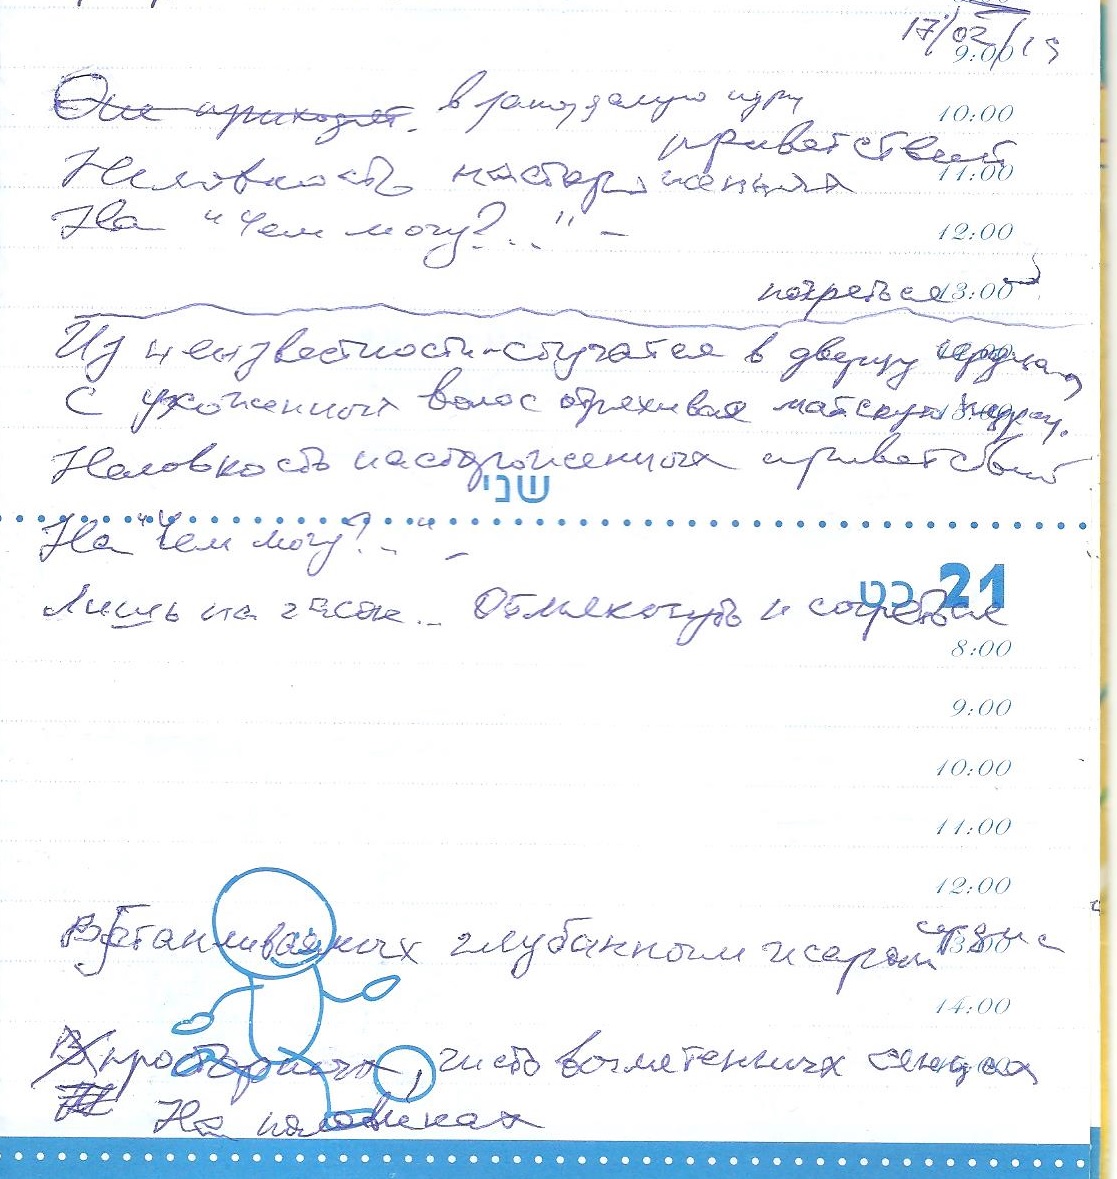 17/02/19
9:00
Они приходят в запоздалую игру
10:00
приветствий
Неловкость настороженных
11:00
На "Чем могу?..." –
12:00
погреться
13:00
Из неизвестности-стучатся в дверцу сердца,
С ухоженных волос отряхивая майскую пудру.
Неловкость настороженных приветствий
שני
На "Чем могу?.." –
21 כט
Лишь на часок... Обмякнуть и согреться
8:00
9:00
10:00
11:00
12:00
сердца
глубинным жаром
13:00
14:00
В просторных, чисто выметенных сенцах
На половиках